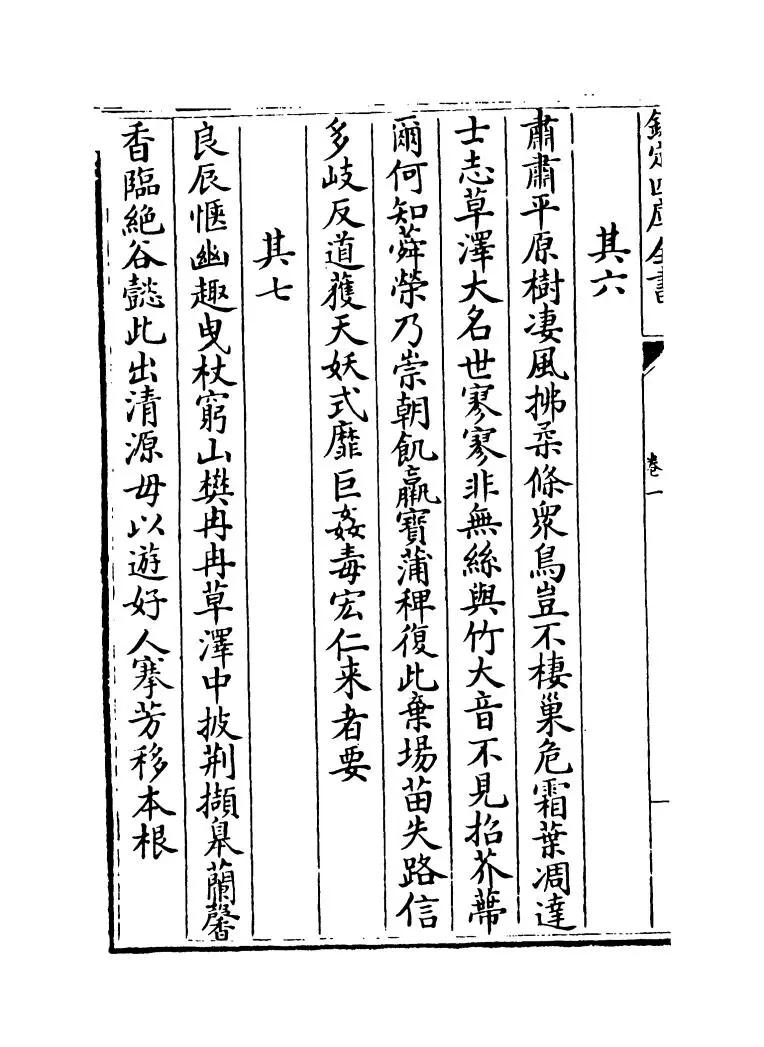 欽定四庫全書
卷一
其六
肅肅平原樹凄風拂柔條衆鳥豈不棲巢危霜葉凋達
士志草澤大名世寥寥非無絲與竹大音不見招芥蔕
爾何知蕣榮乃崇朝飢羸寶蒲稗復此棄場苗失路信
多岐反道䕶天妖式靡巨姦毒宏仁来者要
其七
良辰愜幽趣曳杖窮山樊冉冉草澤中披荆擷臯蘭馨
香臨絶谷懿此出清源毋以遊好人搴芳移本根